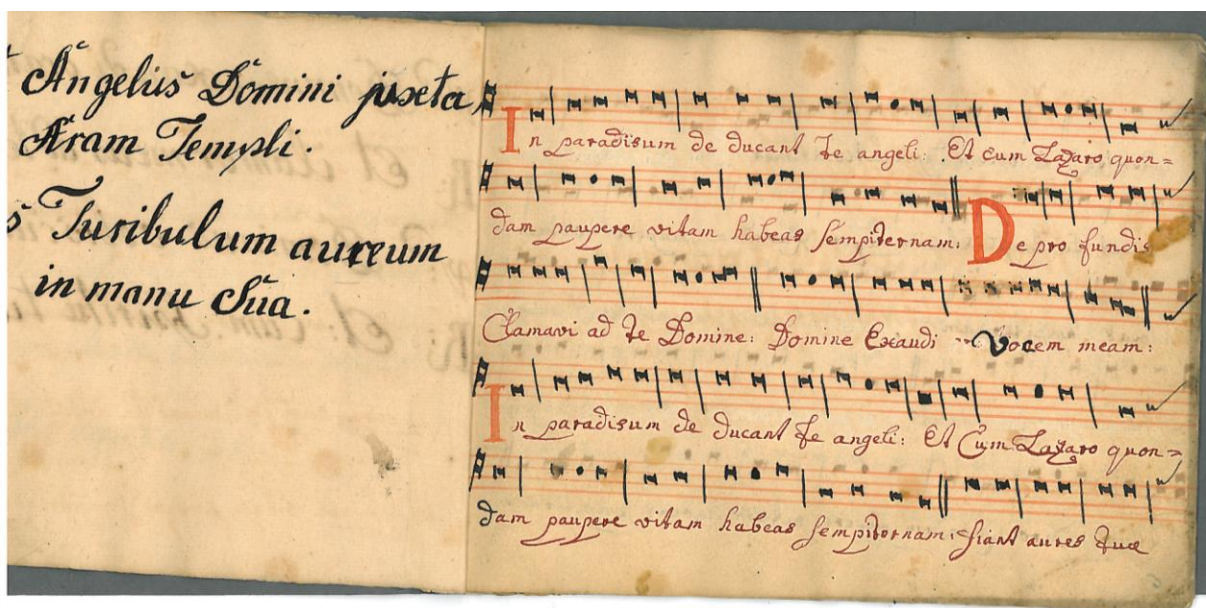 Angelus Domini juxta
Aram Templi.
Turibulum aureum
in manu Sua.
In paradisum de ducant te angeli: Et cum Lazaro quon=
dam paupere vitam habeas sempiternam: De pro fundis
Clamavi ad te Domine: Domine Exaudi Vocem meam:
In paradisum de ducant te angeli: Et Cum Lazaro quon=
dam paupere vitam habeas sempiternam: fiant aures tuae